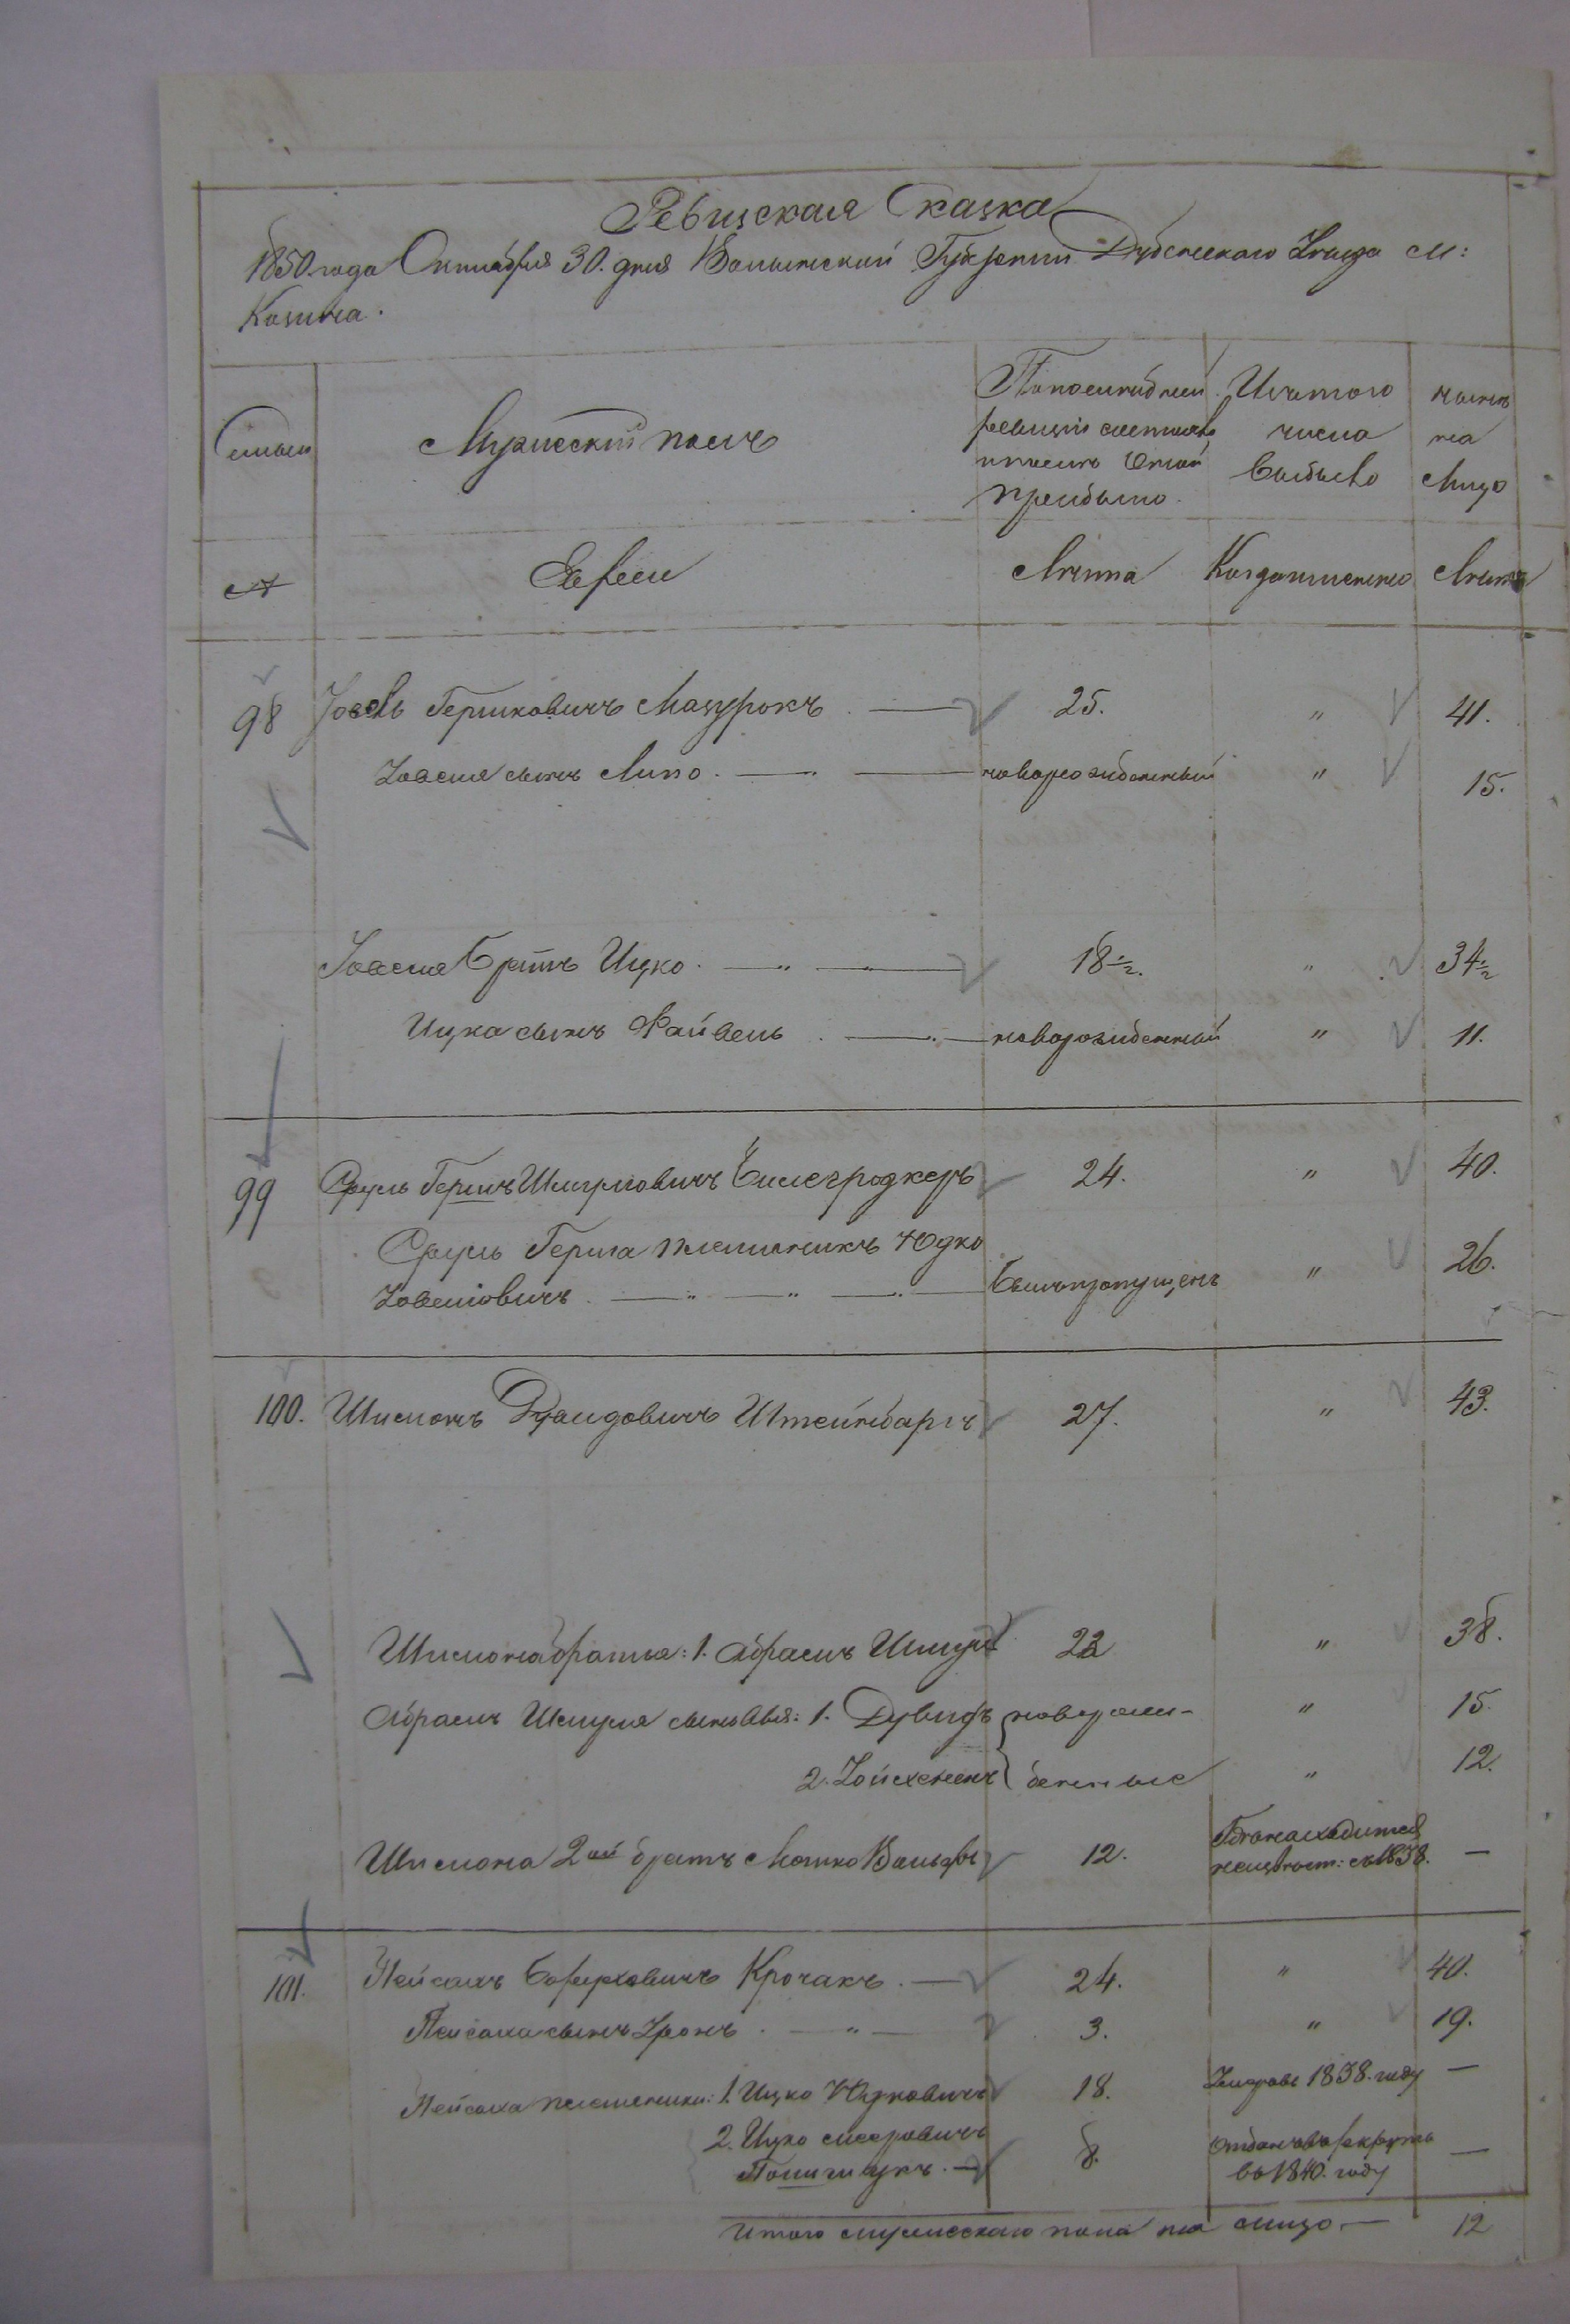 Ревизская Сказка
1850. года Октября 30. дня Волынской Губернии Дубенскаго Уезда М:
Козина.
Семьи
Мужеский полъ
По последней
ревизии состояло
и после оной
прибыло.
Изъ того
числа
выбыло
ныне
на
Лицо
№
Евреи
Лета
Когда именно
Лета
98 Іосель Гершковичъ Мазурокъ. 25. " 41.
Іоселя сынъ Липо. новорожденный " 15.
Іоселя братъ Ицко. 18 1/2. " 34 1/2
Ицка сынъ Файвель. новорожденный " 11.
99 Сруль Гершъ Шмулиовичъ 24. " 40.
Сруль Герша племяникъ Юдко
Іоселіовичъ. былъ пропущенъ " 26.
100. Шимонъ Дувидовичъ Штейнбаргъ 27. " 43.
Шимона братья: 1. Абрамъ Шмуль 22 " 38.
Абрамъ Шмуля сыновья: 1. Дувидъ новорож- " 15.
2. денные " 12.
Шимона 2ой братъ Мошко Вольфъ 12. Где находится
неизвест: съ 1838. —
101. Пейсахъ Боруховичъ Крочакъ. 24. " 40.
Пейсаха сынъ 3. " 19.
Пейсаха племяники: 1. Ицко Юдковичъ 18. Умеръ въ 1838. году —
2. Ицко Мееровичъ
8. отданъ въ рекруты —
въ 1840. году
Итого мужескаго пола на лицо — 12